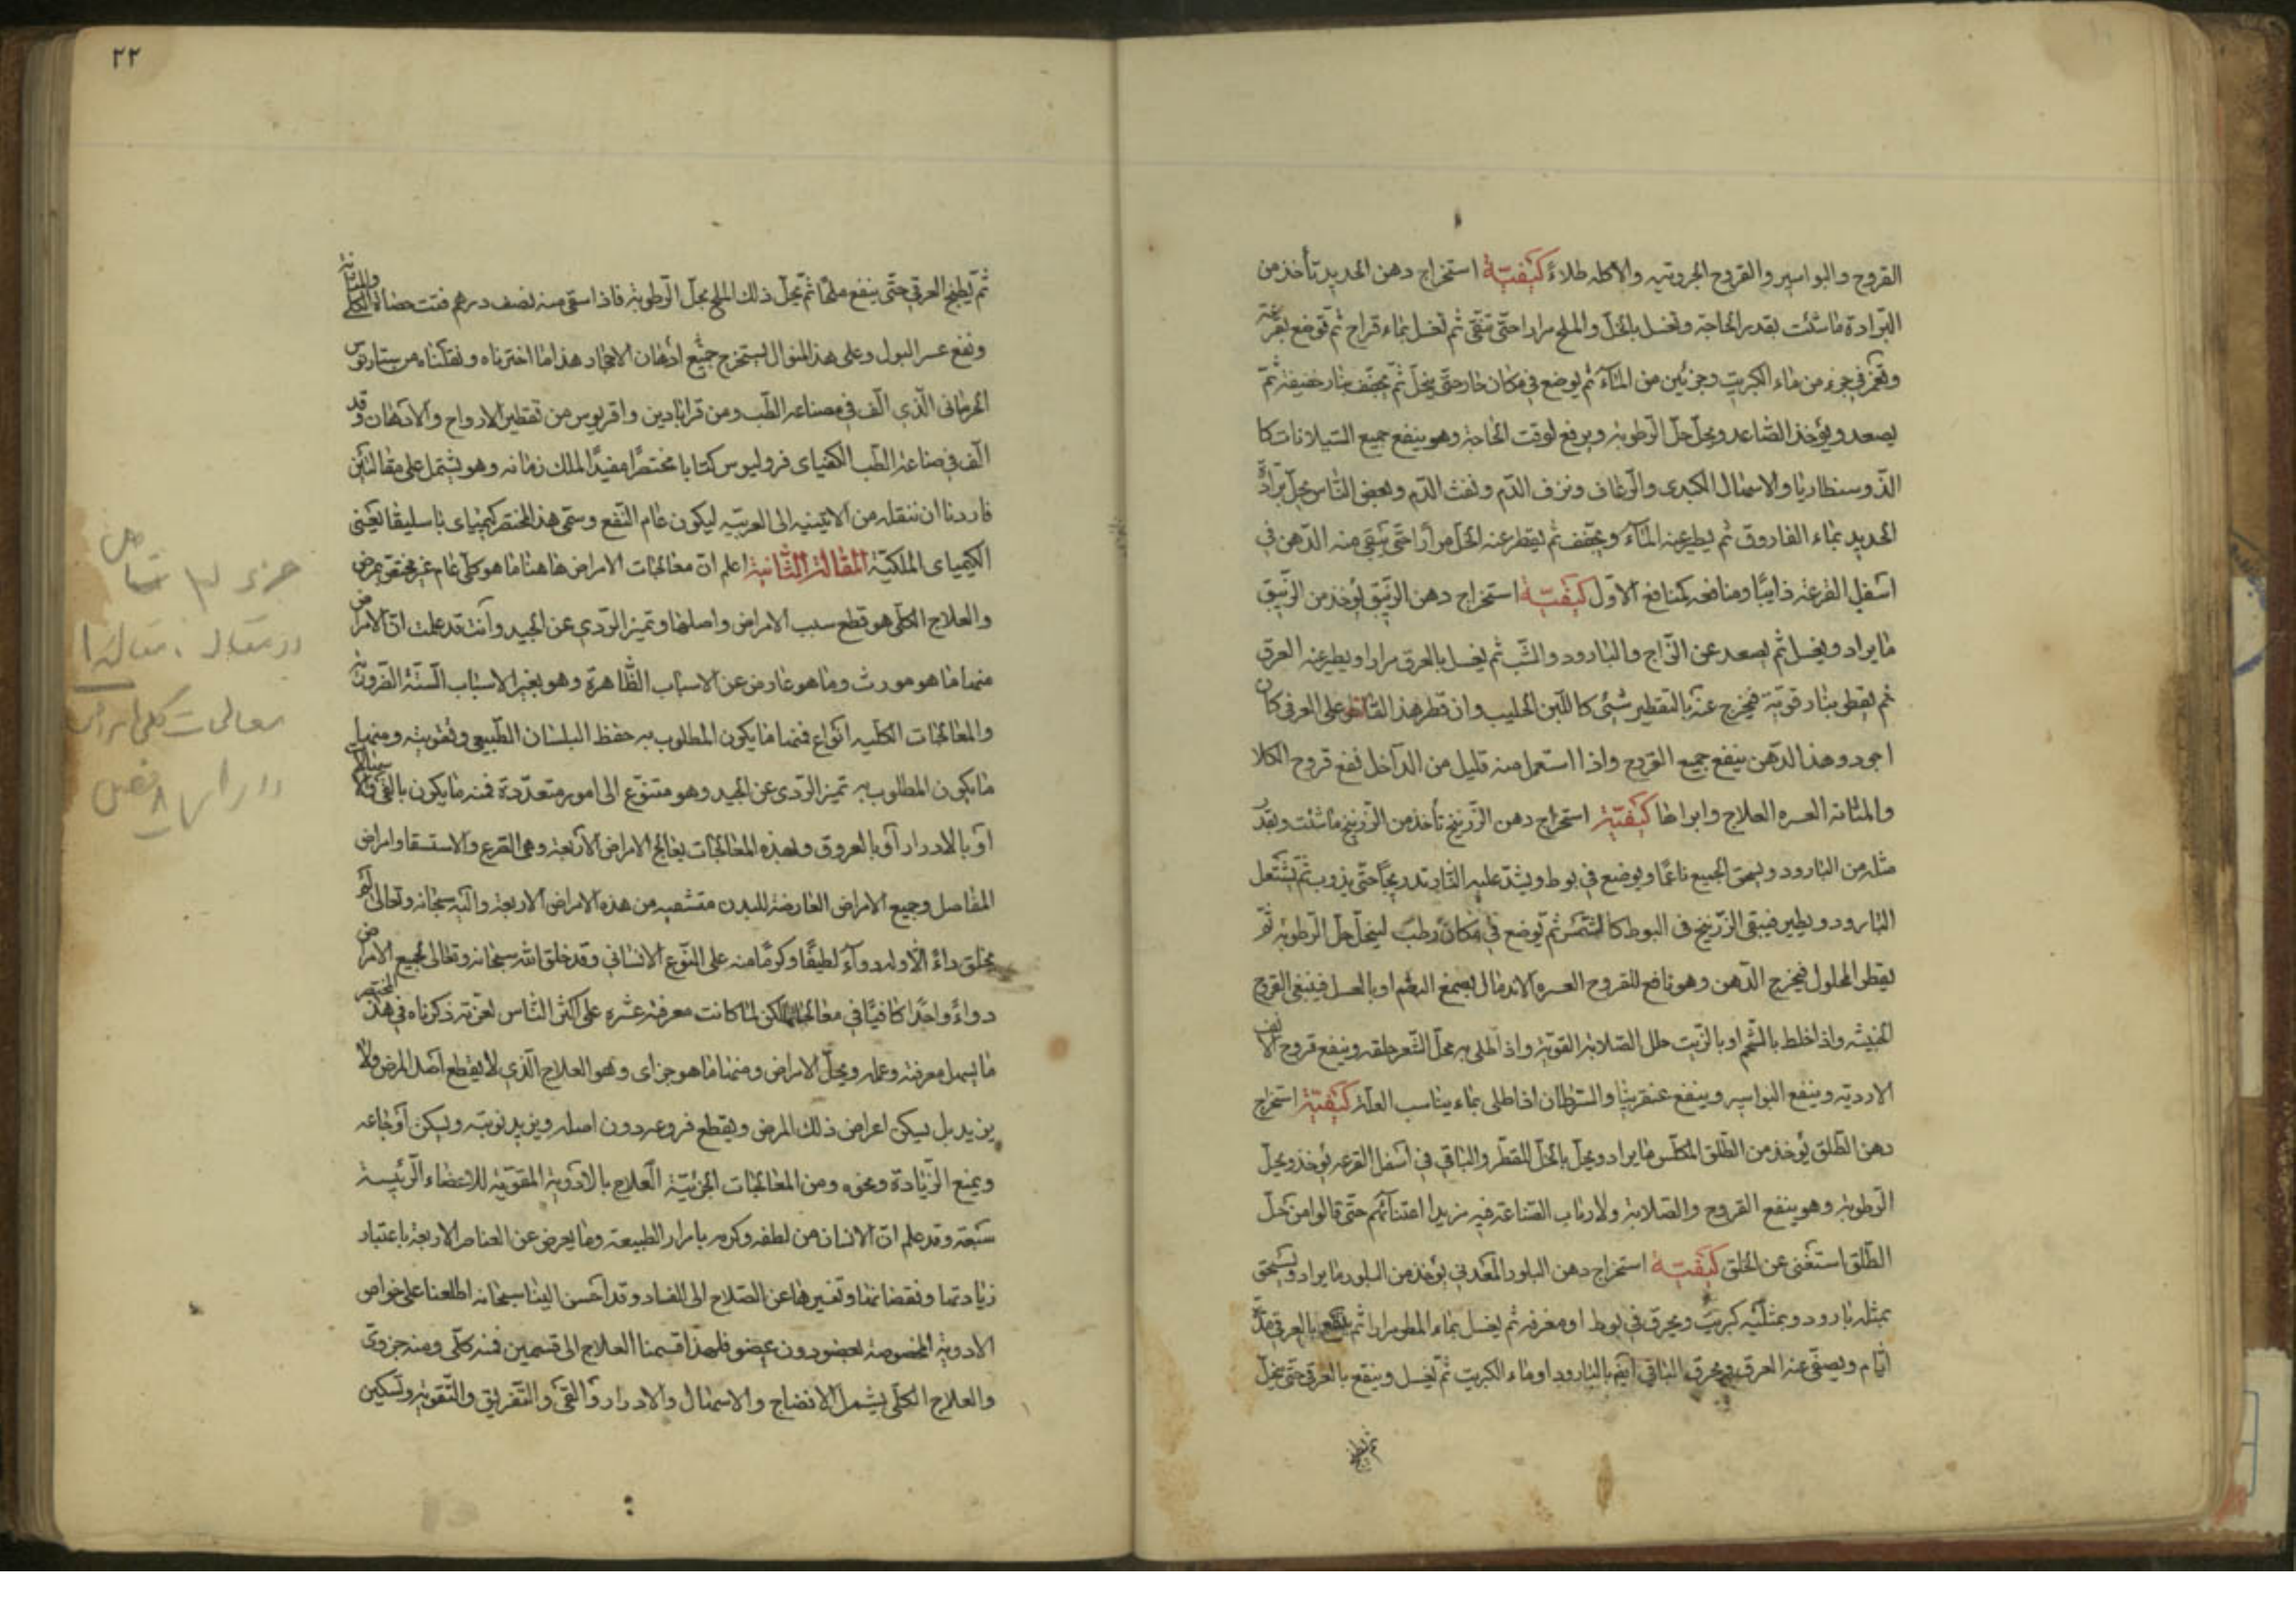 القروح والبواسير والقروح الجروتيه والاكله طلاءً كيفيّة استخراج دهن الحديد تأخذ من
البرادة ماشئت بقدر الحاجة وتغسل بالخلّ والملح مرارا حتّى تنقّى ثم تغسل بماء قراح ثم توضع بقرعة
وتغمر في جزء من ماء الكبريت وجزئين من المآء ثم يوضع في مكان حار حتّى ينحلّ ثم يجفّف بنار خفيفة ثمّ
يصعد ويؤخذ الصّاعد ويحلّ حلّ الرّطوبة ويرفع لوقت الحاجة وهو ينفع جميع السّيلانات كا
الذّوسنطاريا والاسهال الكبدى والرّعاف ونزف الدّم ونفث الدّم وبعض النّاس يحلّ برادة
الحديد بماء الفاروق ثم يطير عنه المآء ويجفّف ثم يقطر عنه الخلّ مراراً حتّى يبقى منه الدّهن في
اسفل القرعة ذايبًا ومنافعه كمنافع الاوّل كيفيّة استخراج دهن الزّيبق يؤخذ من الزّيبق
ما يراد ويغسل ثم يصعد عن الزّاج والبارود والشّب ثم يغسل بالعرق مرارا ويطير عنه العرق
ثم يقطر بنار قويّة فيخرج عنه بالتقطير شئى كاللّبن الحليب وان قطر هذا القاطر على العرق كان
اجود وهذا الدّهن ينفع جميع القروح واذا استعمل منه قليل من الداخل نفع قروح الكلا
والمثانه العسره العلاج وابراها كيفيّة استخراج دهن الزّرنيخ تأخذ من الزّرنيخ ماشئت وبقدر
مثله من البارود ويسحق الجميع ناعمًا ويوضع في بوط ويشدّ عليه النّار تدريجًا حتّى يذوب ثم يشتعل
البارود ويطير فيبقى الزّرنيخ فى البوط كالشّمس ثم يوضع في مكان رطب لينحلّ حلّ الرّطوبة ثمّ
يقطر المحلول فيخرج الدّهن وهو نافع للقروح العسره الاندمال بصمغ البطم او بالعسل فينقى القروح
الخبيثه واذا خلط بالشّحم او بالزّيت حلل الصّلابة القويّة واذا طلى به محلّ الشّعر حلقه وينفع قروح الانف
الارديّه وينفع البواسير وينفع عنقرينا والسّرطان اذا طلى بماء يناسب العلّة كيفيّة استخراج
دهن الطّلق يُؤخذ من الطّلق المكلّس ما يراد ويحلّ بالخلّ المقطّر والباقي في اسفل القرعه يُؤخذ ويحلّ
الرّطوبة وهو ينفع القروح والصّلابة ولارباب الصّناعة فيه مزيد اعتنآئهم حتّى قالوا من حلّ
الطّلق استغنى عن الخلق كيفيّة استخراج دهن البلور المعدني يُؤخذ من البلور ما يراد ويُسحق
بمثله بارود وبمثليه كبريت ويحرق في بوط او مغرفة ثم يغسل بماء المطر مرارا ثم ينقع بالعرق مدّة
ايّام ويصفى عنه العرق ويحرق الباقي ايضا بالبارود او ماء الكبريت ثم يُغسل وينقع بالعرق حتّى ينحلّ
ثم يطبخ
٢٢
ثم يُطبخ العرق حتّى ينفع ملحًا ثم يحلّ ذلك الملح بحلّ الرّطوبة فاذا سقى منه نصف درهم فتت حصاة الكلى والمثانة
ونفع عسر البول وعلى هذا المنوال يستخرج جميع أدهان الاحجار هذا ما اخترناه ونقلناه من ستارتوس
الجرمانى الّذي الّف في صناعة الطّب ومن قرابادين واقريوس من تقطير الارواح والادهان وقد
الّف في صناعة الطّب الكيمياى فروليوس كتابا مختصرًا مفيدًا لملك زمانه وهو يشتمل على مقالتين
فاردنا ان ننقله من الاتينيه الى العربيّه ليكون عام النّفع وسمّى هذا المختصر كيمياى باسليقا يعنى
الكيمياى الملكيّة المقالة الثّانية اعلم انّ معالجات الامراض هاهنا ما هو كلّى عام غير مختصّ بمرض
والعلاج الكلّى هو قطع سبب الامراض واصلها وتميز الرّدي عن الجيد وأنت قد علمت انّ الامراض
منها ما هو مورث وما هو عارض عن الاسباب الظّاهرة وهو بغير الاسباب السّتّة الضّروريّة
والمعالجات الكليه انواع فمنها ما يكون المطلوب به حفظ البلسان الطّبيعى وتقويته ومنها
ما يكون المطلوب به تميز الرّدى عن الجيد وهو متنوّع الى امور متعدّدة فمنه ما يكون بالقى
أو بالادرار أو بالعروق ولهذه المعالجات يعالج الامراض الأربعة وهى الصّرع والاستسقا وامراض
المفاصل وجميع الامراض العارضة للبدن متشعبه من هذه الامراض الاربعة والله سبحانه وتعالى لم
يخلق داءً الّا وله دوآءً لطيفًا وكرمًا منه على النّوع الانسانى وقد خلق الله سبحانه وتعالى لجميع الامراض
دواءً واحدًا كافيًا في معالجاتها لكن لمّا كانت معرفته عسرة على اكثر النّاس لعزّته ذكرناه في هذا المختصر
ما يسهل معرفته وعمله ويحلّ الامراض ومنها ما هو جزاى وهو العلاج الّذي لا يقطع اصل المرض ولا
يزيد بل يسكن اعراض ذلك المرض ويقطع فروعه دون اصله ويزيد نوبته ويسكن أوجاعه
ويمنع الزّيادة ونحوه ومن المعالجات الجزئيّة العلاج بالادوية المقويّة للاعضاء الرّئيسة
سبعة وقد علم انّ الانسان من لطفه وكرمه باسرار الطبيعة وما يعرض عن العناصر الاربعة باعتبار
زيادتها ونقصانها وتغيرها عن الصّلاح الى الفساد وقد أحسن الينا سبحانه اطلعنا على خواص
الادوية المخصوصة بعضو دون عضو فلهذا قسمنا العلاج الى قسمين فمنه كلّى ومنه جزوى
والعلاج الكلّى يشمل الانضاج والاسهال والادرار والقى والتّفريق والتّقوية وتسكين
جزء ٣
در مقاله . مقاله ١
معالجات كلى امراض